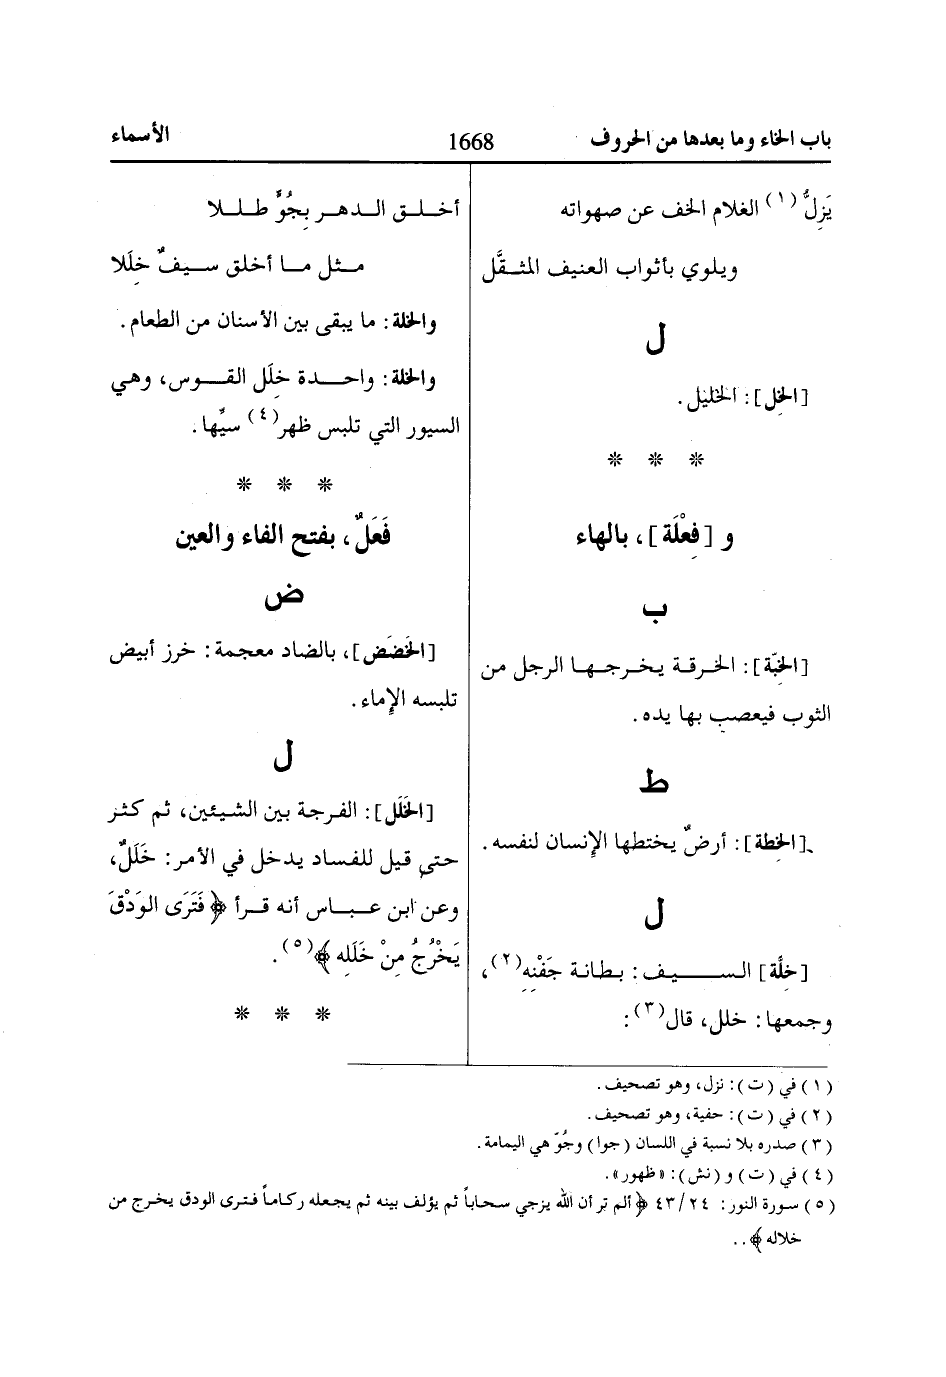 باب الخاء وما بعدها من الحروف 1668 الأسماء
يَزِلُّ(١) الغلام الخف عن صهواته
ويلوي بأثواب العنيف المثقَّل
ل
[الخِل]: الخليل.
* * *
و [فِعْلَة]، بالهاء
ب
[الخِبّة]: الخرقة يخرجها الرجل من
الثوب فيعصب بها يده.
ط
[الخِطة]: أرضٌ يختطها الإنسان لنفسه.
ل
[خِلَّة] السيف: بطانة جَفْنِهِ(٢)،
وجمعها: خلل، قال(٣):
أخلق الدهر بِجُوٍّ طللا
مثل ما أخلق سيفٌ خِلَلا
والخلة: ما يبقى بين الأسنان من الطعام.
والخلة: واحدة خِلَل القوس، وهي
السيور التي تلبس ظهر(٤) سيَّها.
* * *
فَعَلٌ، بفتح الفاء والعين
ض
[الخَضَض]، بالضاد معجمة: خرز أبيض
تلبسه الإماء.
ل
[الخَلَل]: الفرجة بين الشيئين، ثم كثر
حتى قيل للفساد يدخل في الأمر: خَلَلٌ،
وعن ابن عباس أنه قرأ ﴿فَتَرَى الوَدْقَ
يَخْرُجُ مِنْ خَلَلِه﴾(٥).
* * *
(١) في (ت): نزل، وهو تصحيف.
(٢) في (ت): حفية، وهو تصحيف.
(٣) صدره بلا نسبة في اللسان (جوا) وجُوّ هي اليمامة.
(٤) في (ت) و (نش): «ظهور».
(٥) سورة النور: ٤٣/٢٤ ﴿ألم تر أن الله يزجي سحاباً ثم يؤلف بينه ثم يجعله ركاماً فترى الودق يخرج من
خلاله﴾..